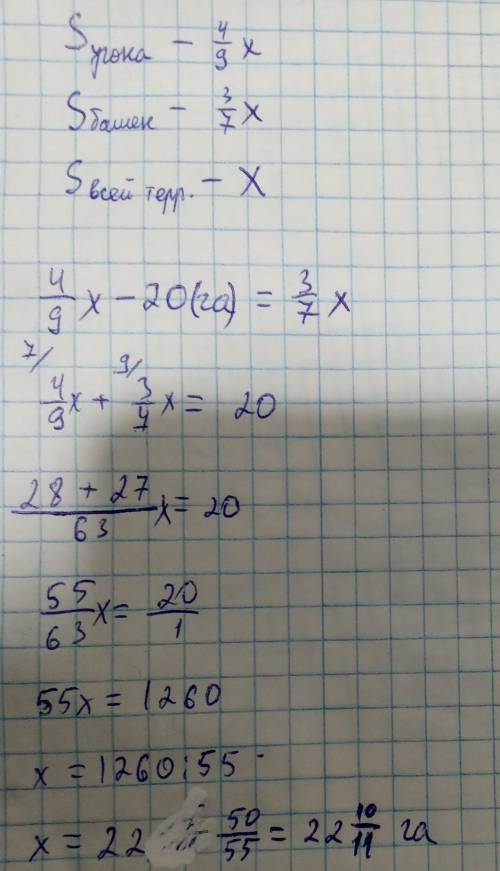 Sугока - 4/9 x
Sбашек - 3/7 x
Sвсей терр. - X
4/9 x - 20(га) = 3/7 x
7/ 9/
4/9 x + 3/7 x = 20
28 + 27/63 x = 20
55/63 x = 20/1
55x = 1260
x = 1260:55
x = 22 50/55 = 22 10/11 га